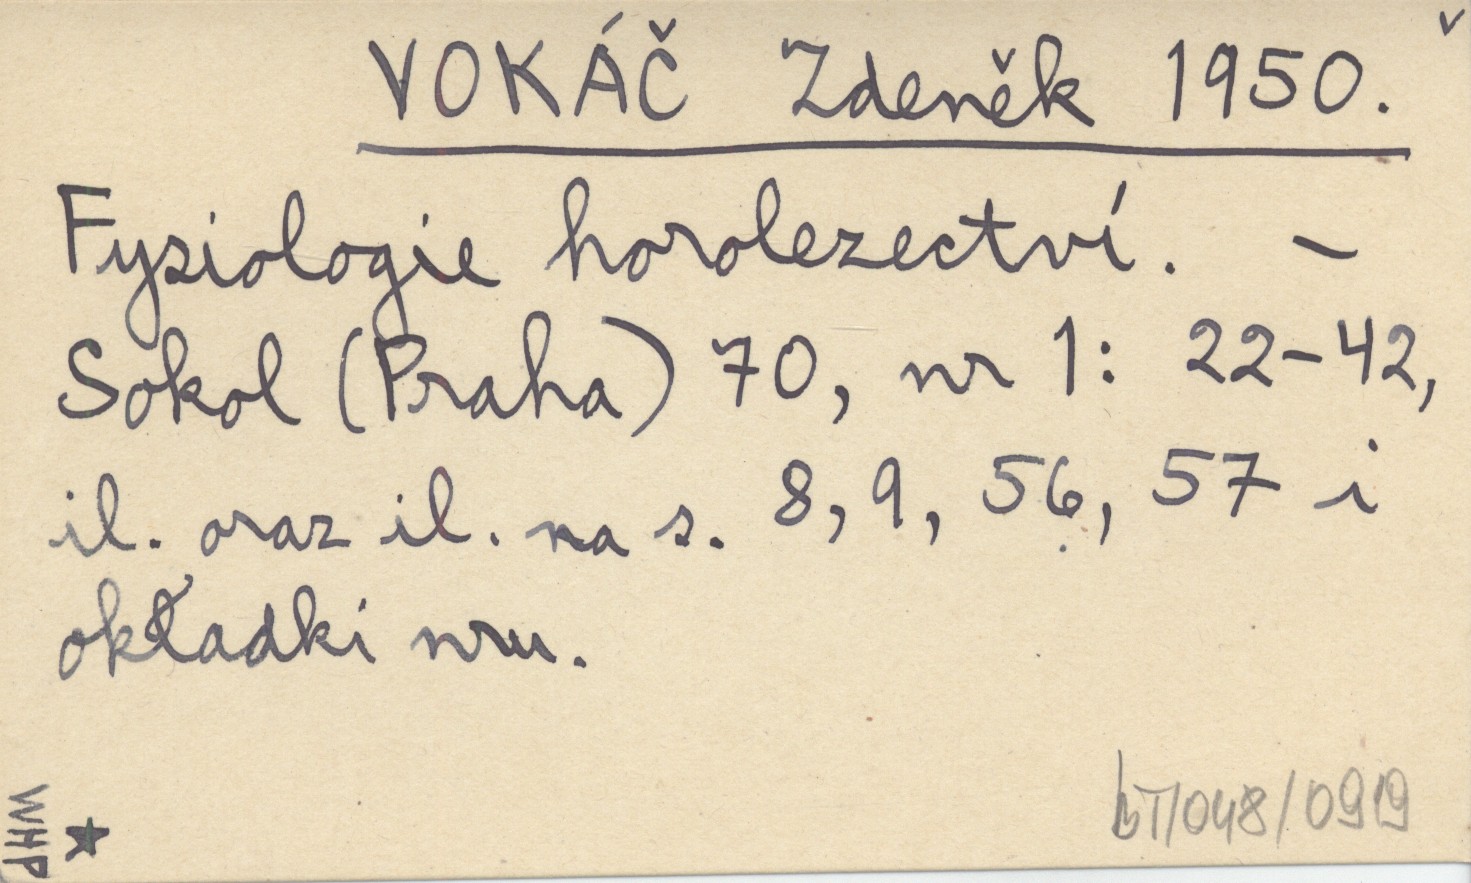 VOKÁČ Zdeněk 1950.
Fysiologie horolezectví. –
Sokol (Praha) 70, nr 1: 22–42,
il. oraz il. na s. 8, 9, 56, 57 i
okładki nru.
WHP
bT/048/0919